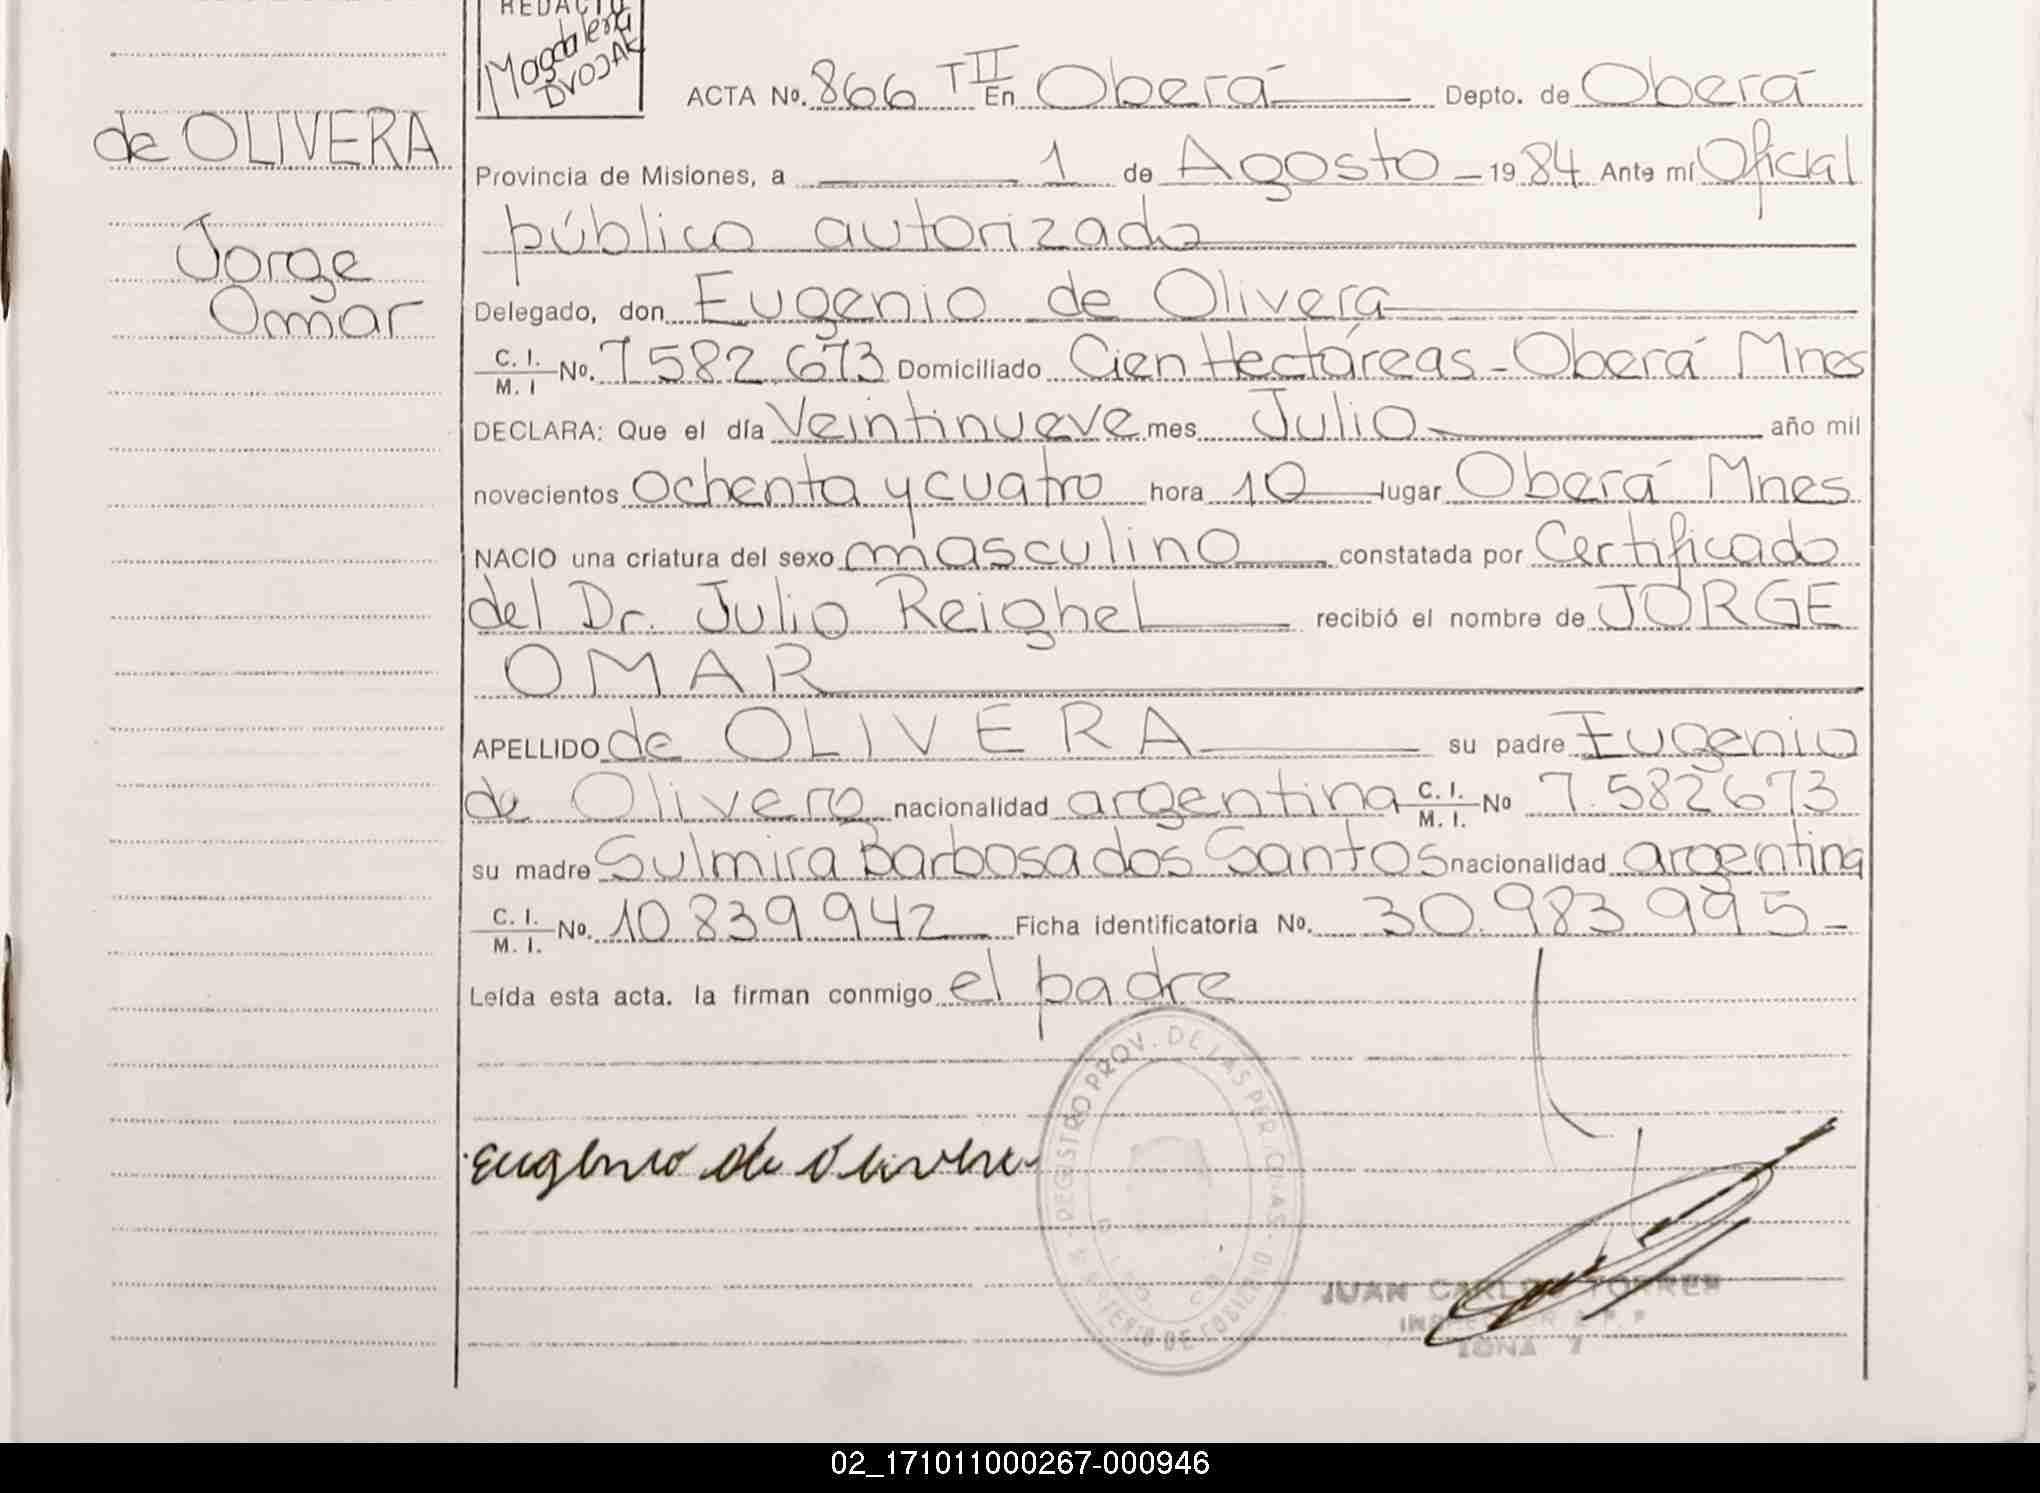 REDACTO
Magdalena
DVOJAK
ACTA Nº. 866 T II En Oberá Depto. de Oberá
de OLIVERA
Jorge
Omar
Provincia de Misiones, a 1 de Agosto 1984 Ante mí Oficial
público autorizado
Delegado, don Eugenio de Olivera
C. I.
M. I Nº. 7582.673 Domiciliado Cien Hectáreas - Oberá Mnes
DECLARA: Que el día Veintinueve mes Julio año mil
novecientos ochenta y cuatro hora 10 lugar Oberá Mnes
NACIO una criatura del sexo masculino constatada por Certificado
del Dr. Julio Reighel recibió el nombre de JORGE
OMAR
APELLIDO de OLIVERA su padre Eugenio
de Olivera nacionalidad argentina C. I.
M. I. Nº 7.582673
su madre Sulmira Barbosa dos Santos nacionalidad argentina
C. I.
M. I. Nº. 10.839.942 Ficha identificatoria Nº. 30.983.995-
Leída esta acta. la firman conmigo el padre
REGISTRO PROV. DE LAS PERSONAS
Eugenio de Olivera
JUAN CARLOS TORRES
ZONA 7
02_171011000267-000946